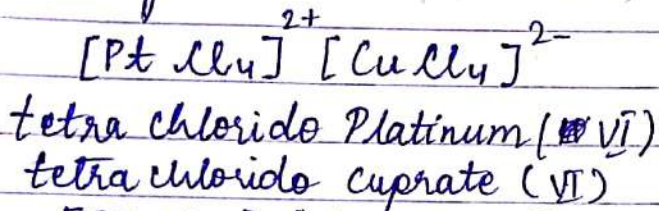 [Pt Cl4]2+ [Cu Cl4]2-
tetra chlorido Platinum (VI)
tetra chlorido cuprate (VI)